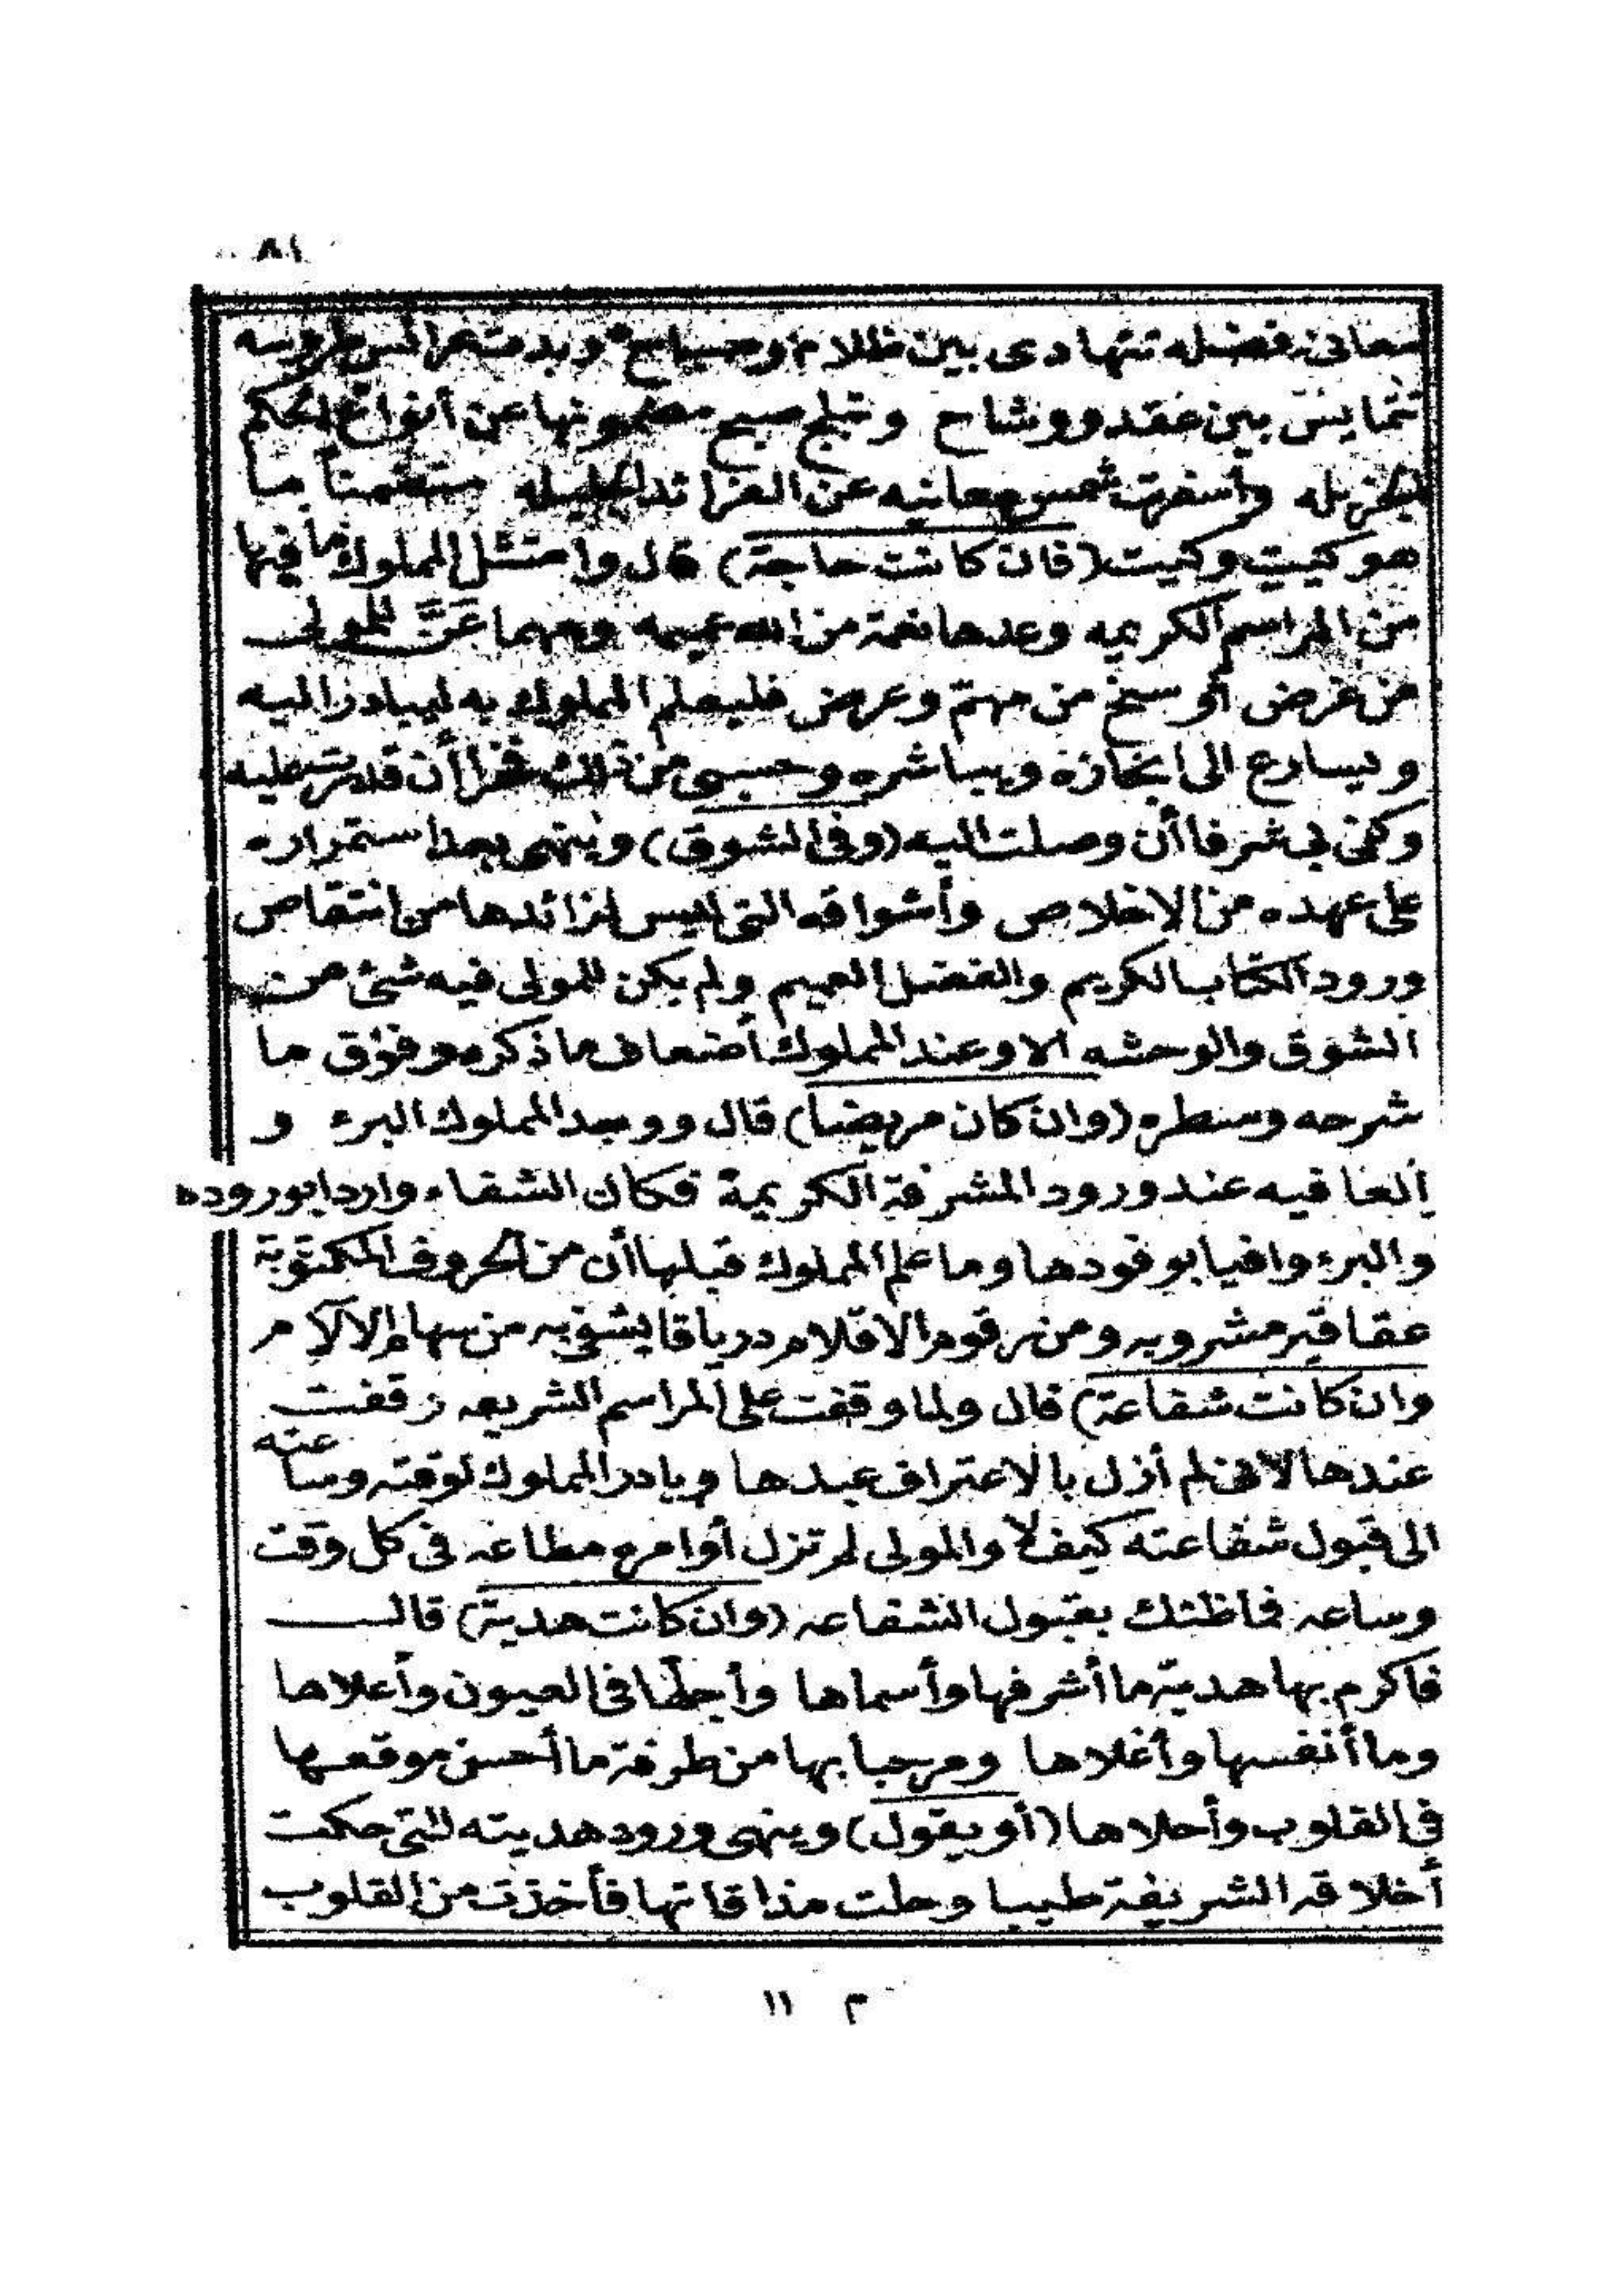 ٨١
معانى فضله تتهادى بين ظلام وصباح وبدت عرائس طروسه
تتمايس بين عقد ووشاح وتبلج صبح مضمونها عن أنواع الحكم
الجزيله وأسفرت شمس معانيه عن الفرائد الجليله متضمنا ما
هو كيت وكيت (فان كانت حاجة) قال وامتثل المملوك ما فيها
من المراسم الكريمه وعدها نعمة من الله عميمه ومهما عَنَّ للمولى
من غرض أو سنح من مهمّ وعرض فليعلم المملوك به ليبادر اليه
ويسارع الى ايجازه ويباشره وحسبى من ذلك فخرا أن قدمت عليه
وكفى بى شرفا أن وصلت اليه (وفى الشوق) وينهى بعد استمراره
على عهده من الاخلاص وأشواقه التى ليس لزائدها من انتقاص
ورود الكتاب الكريم والفضل العميم ولم يكن للمولى فيه شئ من
الشوق والوحشه الا وعند المملوك أضعاف ما ذكره وفوق ما
شرحه وسطره (وان كان مريضا) قال ووجد المملوك البرء و
العافيه عند ورود المشرفة الكريمة فكان الشفاء واردا بوروده
والبرء وافيا بوفودها وما علم المملوك قبلها أن من الحروف المكتوبة
عقاقير مشروبه ومن رقوم الاقلام درياقا يشفى به من سهام الآلام
وان كانت شفاعة) قال ولما وقفت على المراسم الشريعه وقفت
عندها لاننى لم أزل بالاعتراف عبدها وبادر المملوك لوقته وساعته
الى قبول شفاعته كيف لا والمولى لم تزل أوامره مطاعه فى كل وقت
وساعه فما ظنك بقبول الشفاعه (وان كانت هدية) قال
فاكرم بها هدية ما أشرفها وأسماها وأجلها فى العيون وأعلاها
وما أنفسها وأغلاها ومرحبا بها من طرفة ما أحسن موقعها
فى القلوب وأحلاها (أو يقول) وينهى ورود هديته التى حكت
أخلاقه الشريفة طيبا وحلت مذاقاتها فأخذت من القلوب
١١ م